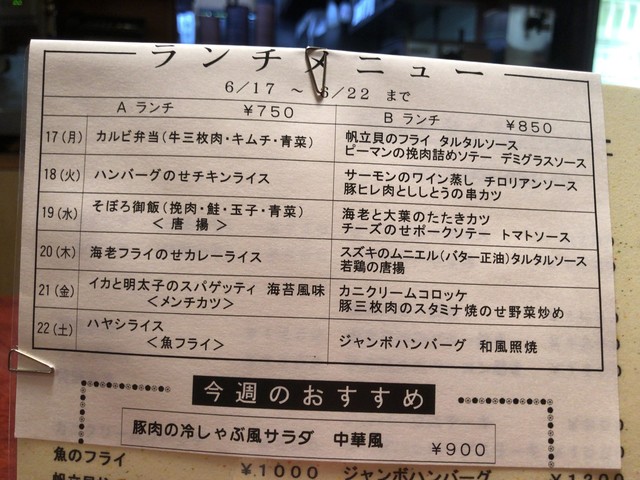 ランチメニュー
6/17 ～ 6/22 まで
A ランチ ¥750
B ランチ ¥850
17(月) カルビ弁当(牛三枚肉・キムチ・青菜)
帆立貝のフライ タルタルソース
ピーマンの挽肉詰めソテー デミグラスソース
18(火) ハンバーグのせチキンライス
サーモンのワイン蒸し チロリアンソース
豚ヒレ肉とししとうの串カツ
19(水) そぼろ御飯(挽肉・鮭・玉子・青菜)
＜ 唐 揚 ＞
海老と大葉のたたきカツ
チーズのせポークソテー トマトソース
20(木) 海老フライのせカレーライス
スズキのムニエル(バター正油)タルタルソース
若鶏の唐揚
21(金) イカと明太子のスパゲッティ 海苔風味
＜メンチカツ＞
カニクリームコロッケ
豚三枚肉のスタミナ焼のせ野菜炒め
22(土) ハヤシライス
＜魚フライ＞
ジャンボハンバーグ 和風照焼
今週のおすすめ
豚肉の冷しゃぶ風サラダ 中華風
¥900
魚のフライ ¥1000
ジャンボハンバーグ ¥1200